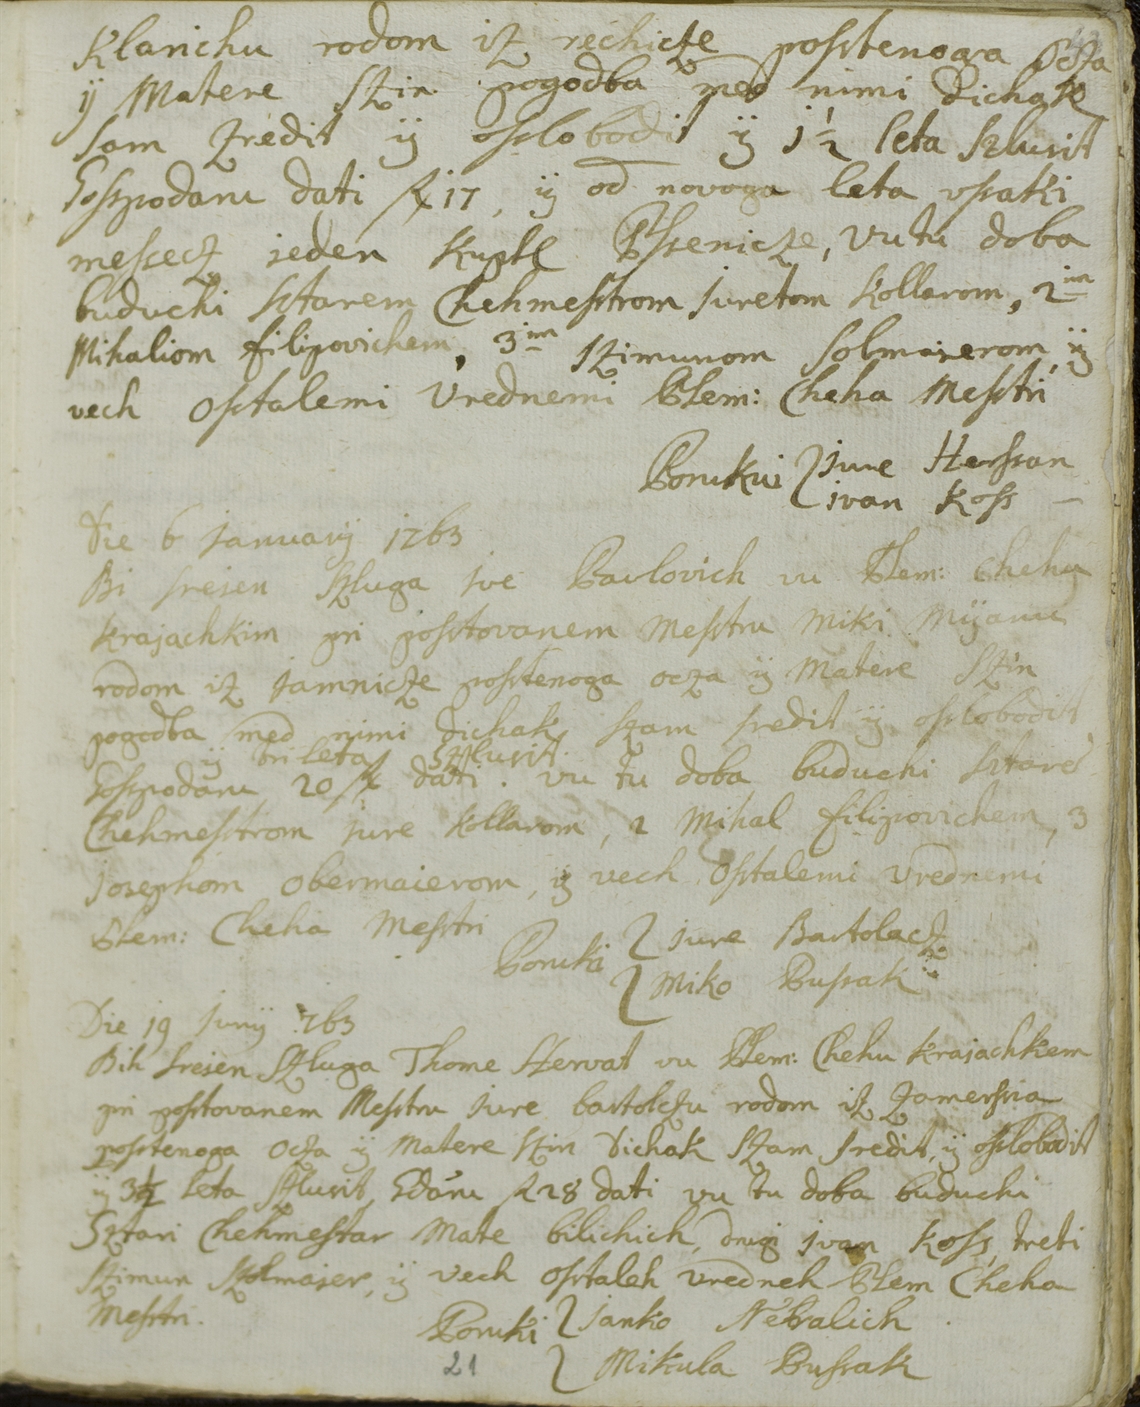 Klarichu rodom iz rechicze posstenoga Ocza
ÿ Matere szin pogodba med nimi dichak
sam zredit ÿ osslobodit ÿ 1 1/2 leta szlusit
Gosspodaru dati f 17, ÿ od novoga leta vssaki
messecz jeden kupl Pssenicze, vu tu doba
buduchi sstarem Chehmesstrom juretom Kollarom, 2im
Mihaliom filipovichem, 3im szimunom solmajerom ÿ
vech osstalemi vrednemi Plem: Cheha Messtri
Poruki jure Herssan
ivan Koss
Die 6 januarÿ 1763
Bi srejen szluga jve Pavlovich vu Plem: Chehu
krajachkim pri posstovanem Messtru Miki Mÿanu
rodom iz jamnicze posstenoga ocza ÿ Matere szin
pogodba med nimi dichak szam sredit ÿ osslobodit
ÿ tri leta szlusit
Gosspodaru 20 f dati. vu tu doba buduchi sstare
Chehmesstrom jure Kollarom, 2 Mihal filipovichem, 3
josephom obermaierom, ÿ vech osstalemi vrednemi
Plem: Cheha Messtri
Poruki jure Bartolacz
Miko Pussak
Die 19 junÿ 763
Bih srejen szluga Thome Horvat vu Plem: Chehu krajachkem
pri posstovanem Messtru jure bartolczu rodom iz zamerssia
posstenoga ocza ÿ Matere szin dichak szam sredit, ÿ osslobodit
ÿ 3 1/2 leta szlusit, Gdaru f 28 dati vu tu doba buduchi
Sztari Chehmestar Mate bilichich, drugi jvan Koss, treti
szimun szolmajer, ÿ vech osstaleh vredneh Plem Cheha
Messtri.
Poruki janko Nebralich
Mikula Pussak
21